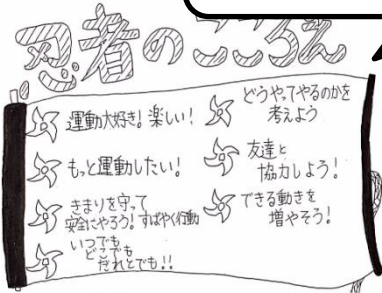 忍者のこころえ
運動大好き！楽しい！
もっと運動したい！
きまりを守って
安全にやろう！すばやく行動
いつでも
どこでも
だれとでも！！
どうやってやるのかを
考えよう
友達と
協力しよう！
できる動きを
増やそう！